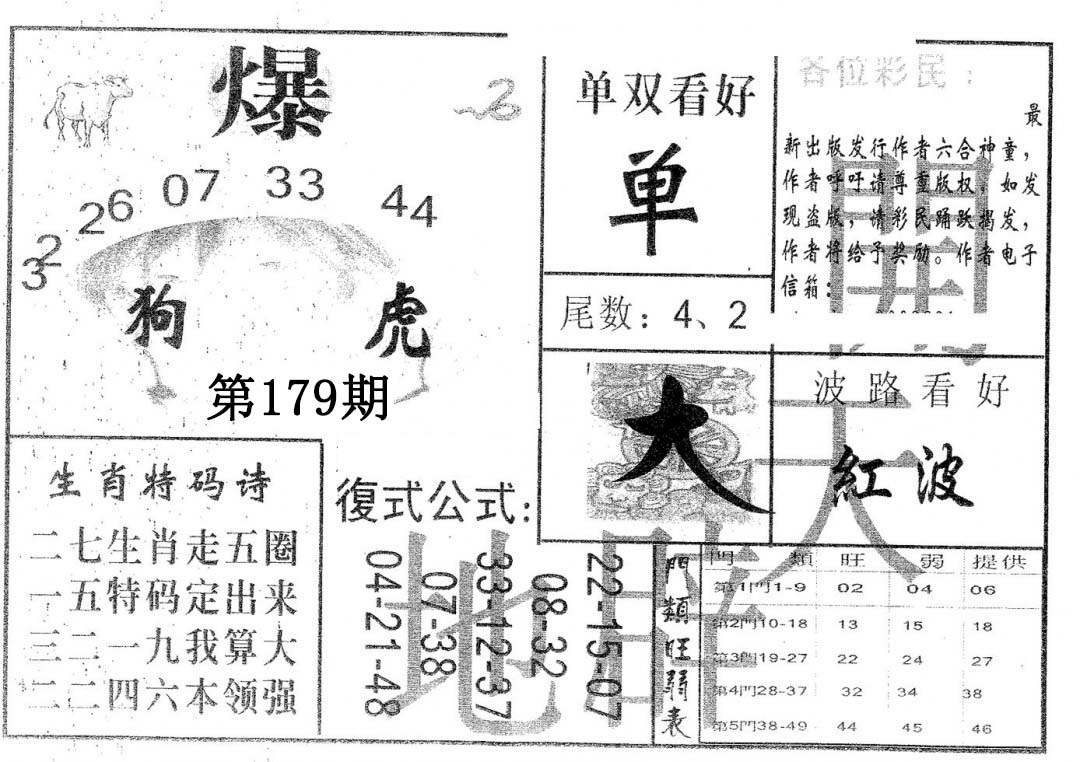 爆
32 26 07 33 44
狗 虎
第179期
单双看好
单
尾数：4、2
大
各位彩民：
最
新出版发行作者六合神童，
作者呼吁请尊重版权。如发
现盗版，请彩民踊跃揭发，
作者将给予奖励。作者电子
信箱：
波路看好
紅波
生肖特码诗
二七生肖走五圈
一五特码定出来
三二一九我算大
二二四六本领强
復式公式：
22-15-07
08-32
33-12-37
07-38
04-21-48
門類旺弱表
門 類 旺 弱 提供
第1門1-9 02 04 06
第2門10-18 13 15 18
第3門19-27 22 24 27
第4門28-37 32 34 38
第5門38-49 44 45 46